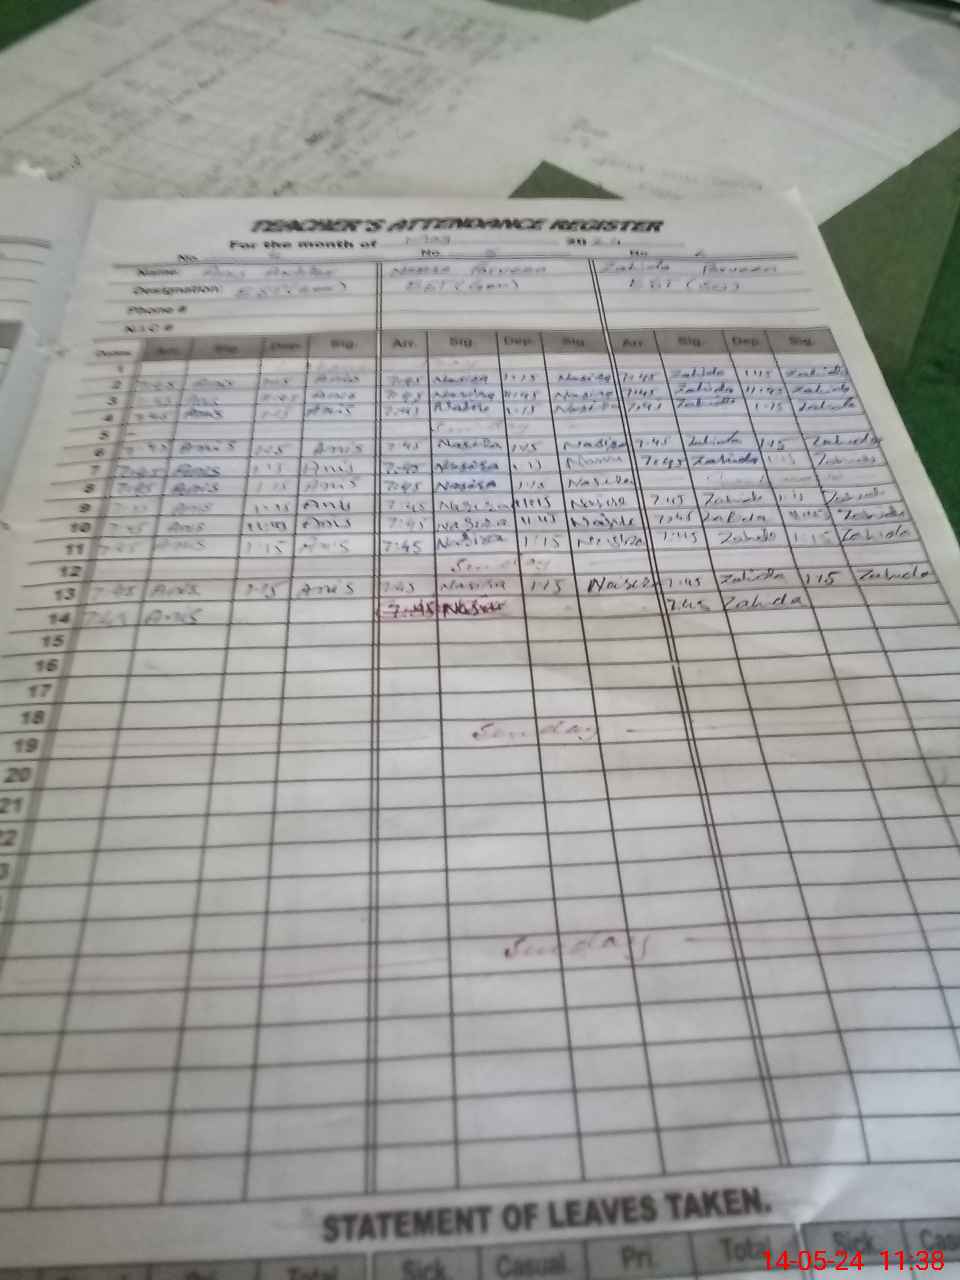 TEACHER'S ATTENDANCE REGISTER
For the month of May 2024
No. No. 5 No. 6
Name Anis Akhter Nasira Parveen Zahida Parveen
Designation EST (Gen) EST (Gen) EST (Sci)
Phone #
N.I.C #
Dates Arr. Sig. Dep. Sig. Arr. Sig. Dep. Sig. Arr. Sig. Dep. Sig.
1
2 7:45 Anis 1:15 Anis 7:45 Nasira 1:15 Nasira 7:45 Zahida 1:15 Zahida
3 7:45 Anis 11:45 Anis 7:45 Nasira 11:45 Nasira 7:45 Zahida 11:45 Zahida
4 7:45 Anis 1:15 Anis 7:45 Nasira 1:15 Nasira 7:45 Zahida 1:15 Zahida
5 Sunday
6 7:45 Anis 1:15 Anis 7:45 Nasira 1:15 Nasira 7:45 Zahida 1:15 Zahida
7 7:45 Anis 1:15 Anis 7:45 Nasira 1:15 Nasira 7:45 Zahida 1:15 Zahida
8 7:45 Anis 1:15 Anis 7:45 Nasira 1:15 Nasira
9 Anis 1:15 Anis 7:45 Nasira 1:15 Nasira 7:45 Zahida 1:15 Zahida
10 7:45 Anis 11:45 Anis 7:45 Nasira 11:45 Nasira 7:45 Zahida 11:45 Zahida
11 7:45 Anis 1:15 Anis 7:45 Nasira 1:15 Nasira 7:45 Zahida 1:15 Zahida
12 Sunday
13 7:45 Anis 1:15 Anis 7:45 Nasira 1:15 Nasira 7:45 Zahida 1:15 Zahida
14 7:45 Anis 7:45 Nasira 7:45 Zahida
15
16
17
18
19 Sunday
20
21
22
Sunday
STATEMENT OF LEAVES TAKEN.
Pri. Total Sick Casual Pri. Total Sick
14-05-24 11:38